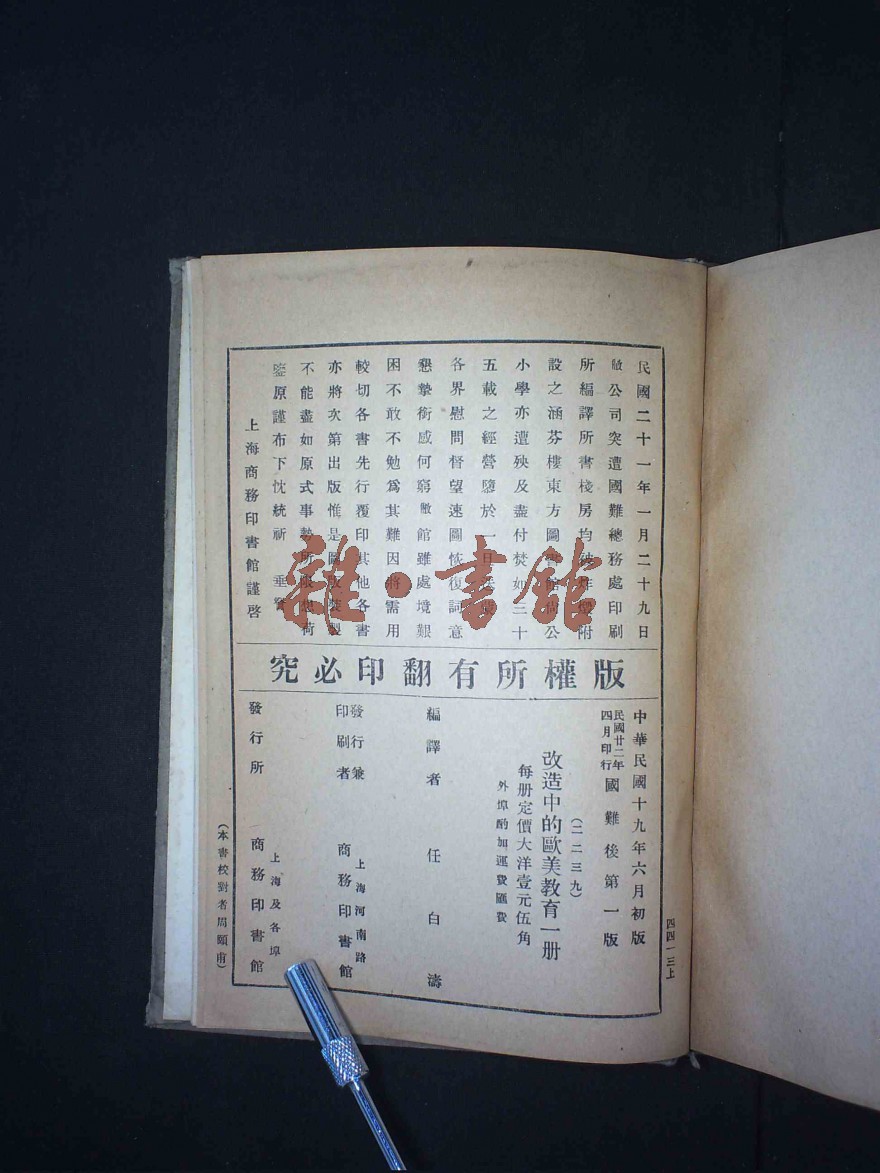 民國二十一年一月二十九日
敝公司突遭國難總務處印刷
所編譯所書棧房均被炸燬附
設之涵芬樓東方圖書館尚公
小學亦遭殃及盡付焚如三十
五載之經營隳於一旦
各界慰問督望速圖恢復詞意
懇摯銜感何窮敝館雖處境艱
困不敢不勉為其難因將需用
較切各書先行覆印其他各書
亦將次第出版惟是圖版裝製
不能盡如原式事勢所限想荷
鑒原謹布下忱統祈 垂詧
上海商務印書館謹啓
版權所有翻印必究
中華民國十九年六月初版
民國廿二年四月印行 國難後第一版
(二二三九)
改造中的歐美教育一册
每册定價大洋壹元伍角
外埠酌加運費匯費
編譯者 任白濤
發行兼印刷者 上海河南路 商務印書館
發行所 上海及各埠 商務印書館
(本書校對者周頤甫)
四四一三上
雜·書館